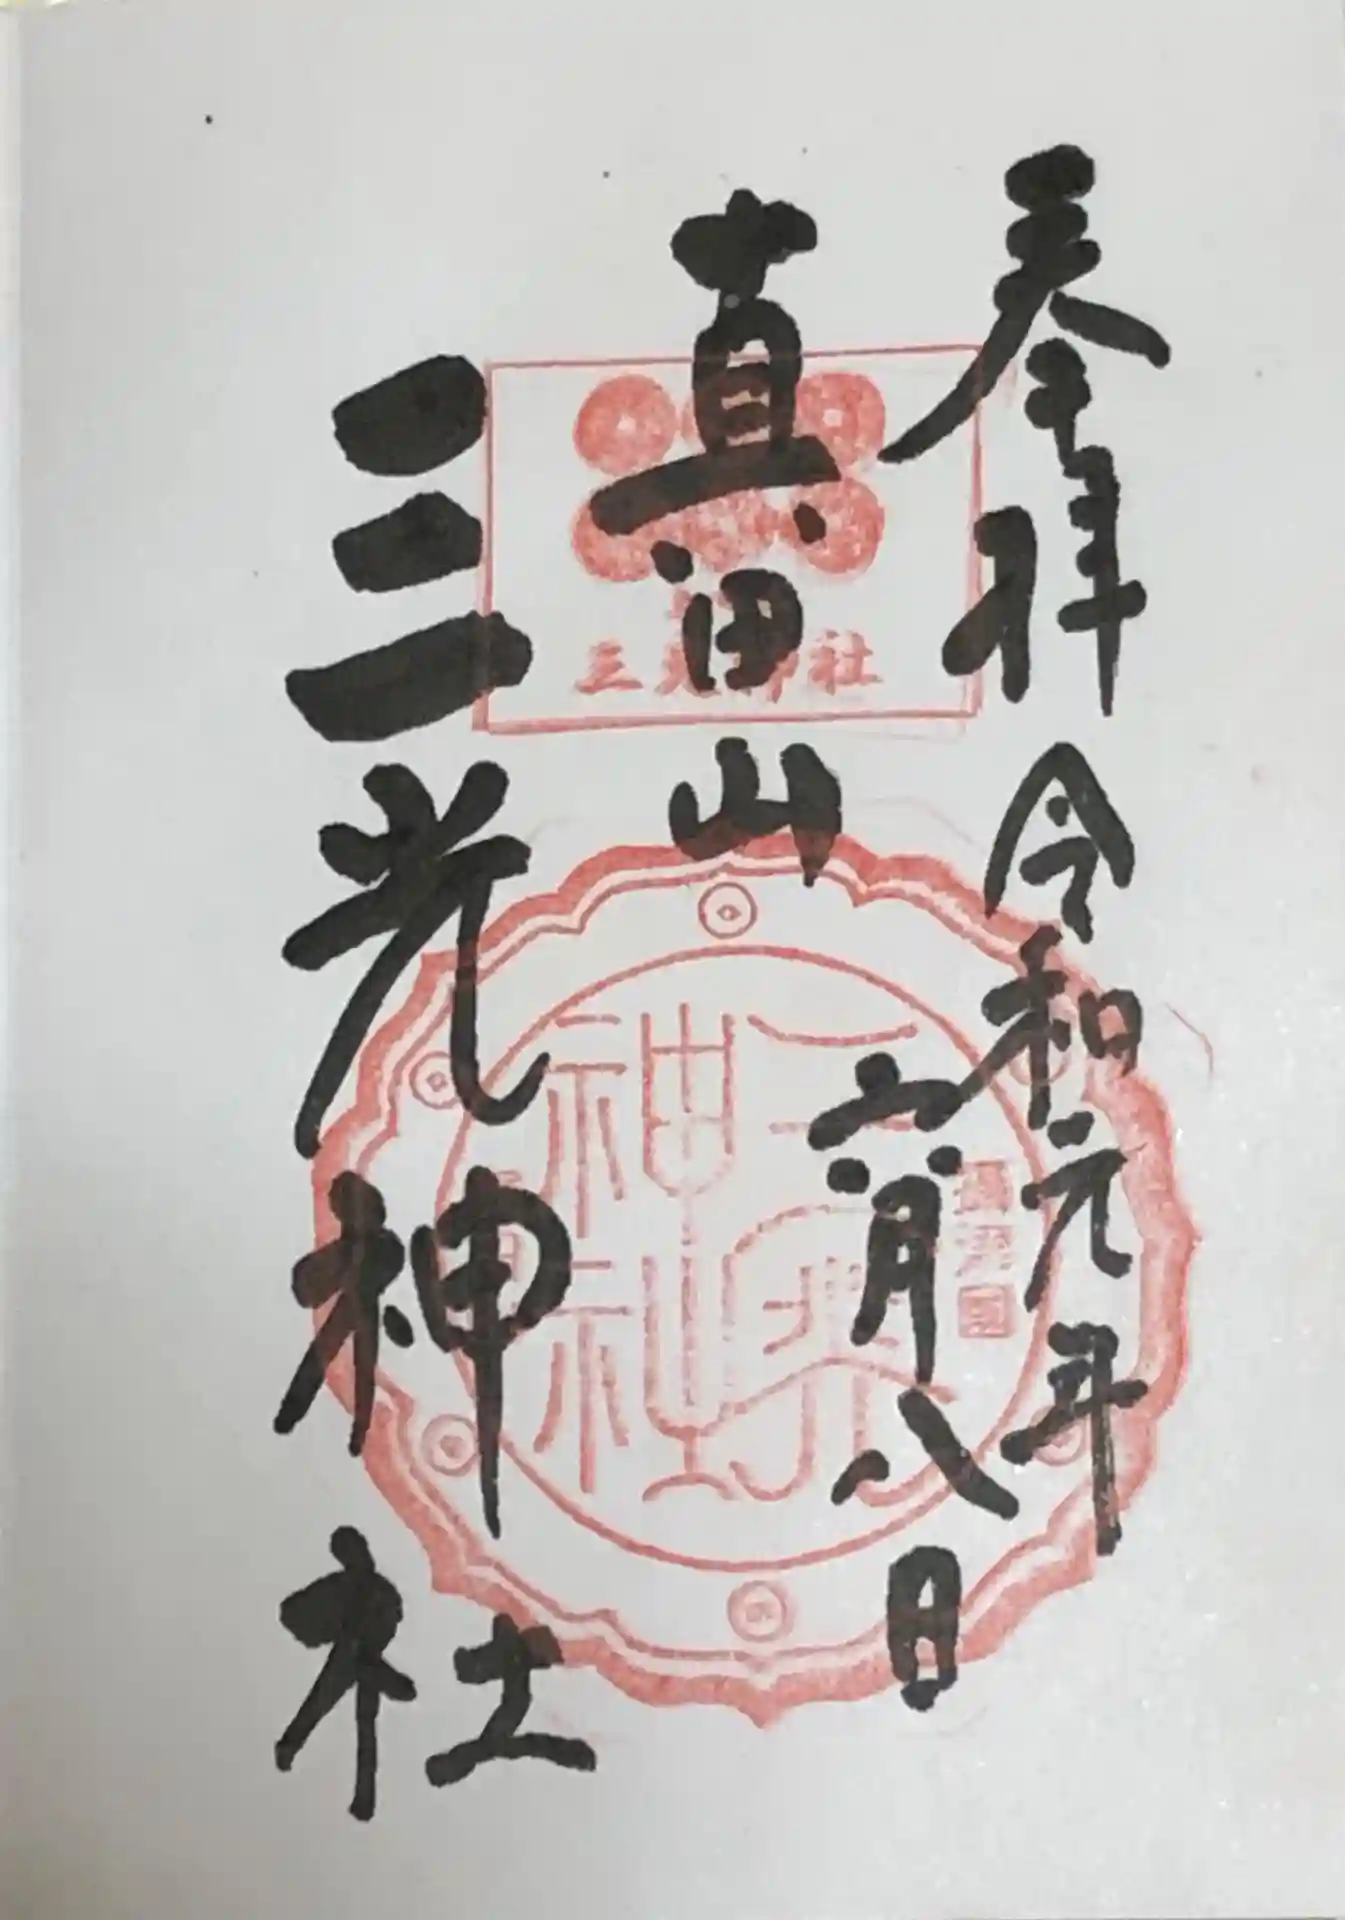 奉拝
令和元年
六月八日
真田山
三光神社
三光神社
三光神社